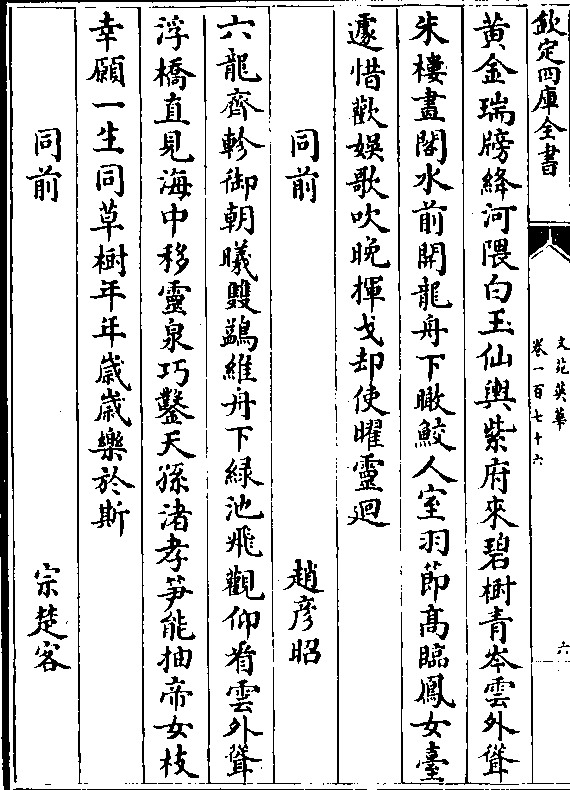 欽定四庫全書
文苑英華
卷一百七十六
六
黄金瑞牓絳河隈白玉仙輿紫府來碧樹青岑雲外聳
朱樓畫閣水前開龍舟下瞰鮫人室羽節高臨鳳女臺
遽惜歡娛歌吹晚揮戈却使曜靈迴
同前
趙彦昭
六龍齊軫御朝曦雙鷁維舟下緑池飛觀仰看雲外聳
浮橋直見海中移靈泉巧鑿天孫渚孝笋能抽帝女枝
幸願一生同草樹年年歲歲樂於斯
同前
宗楚客